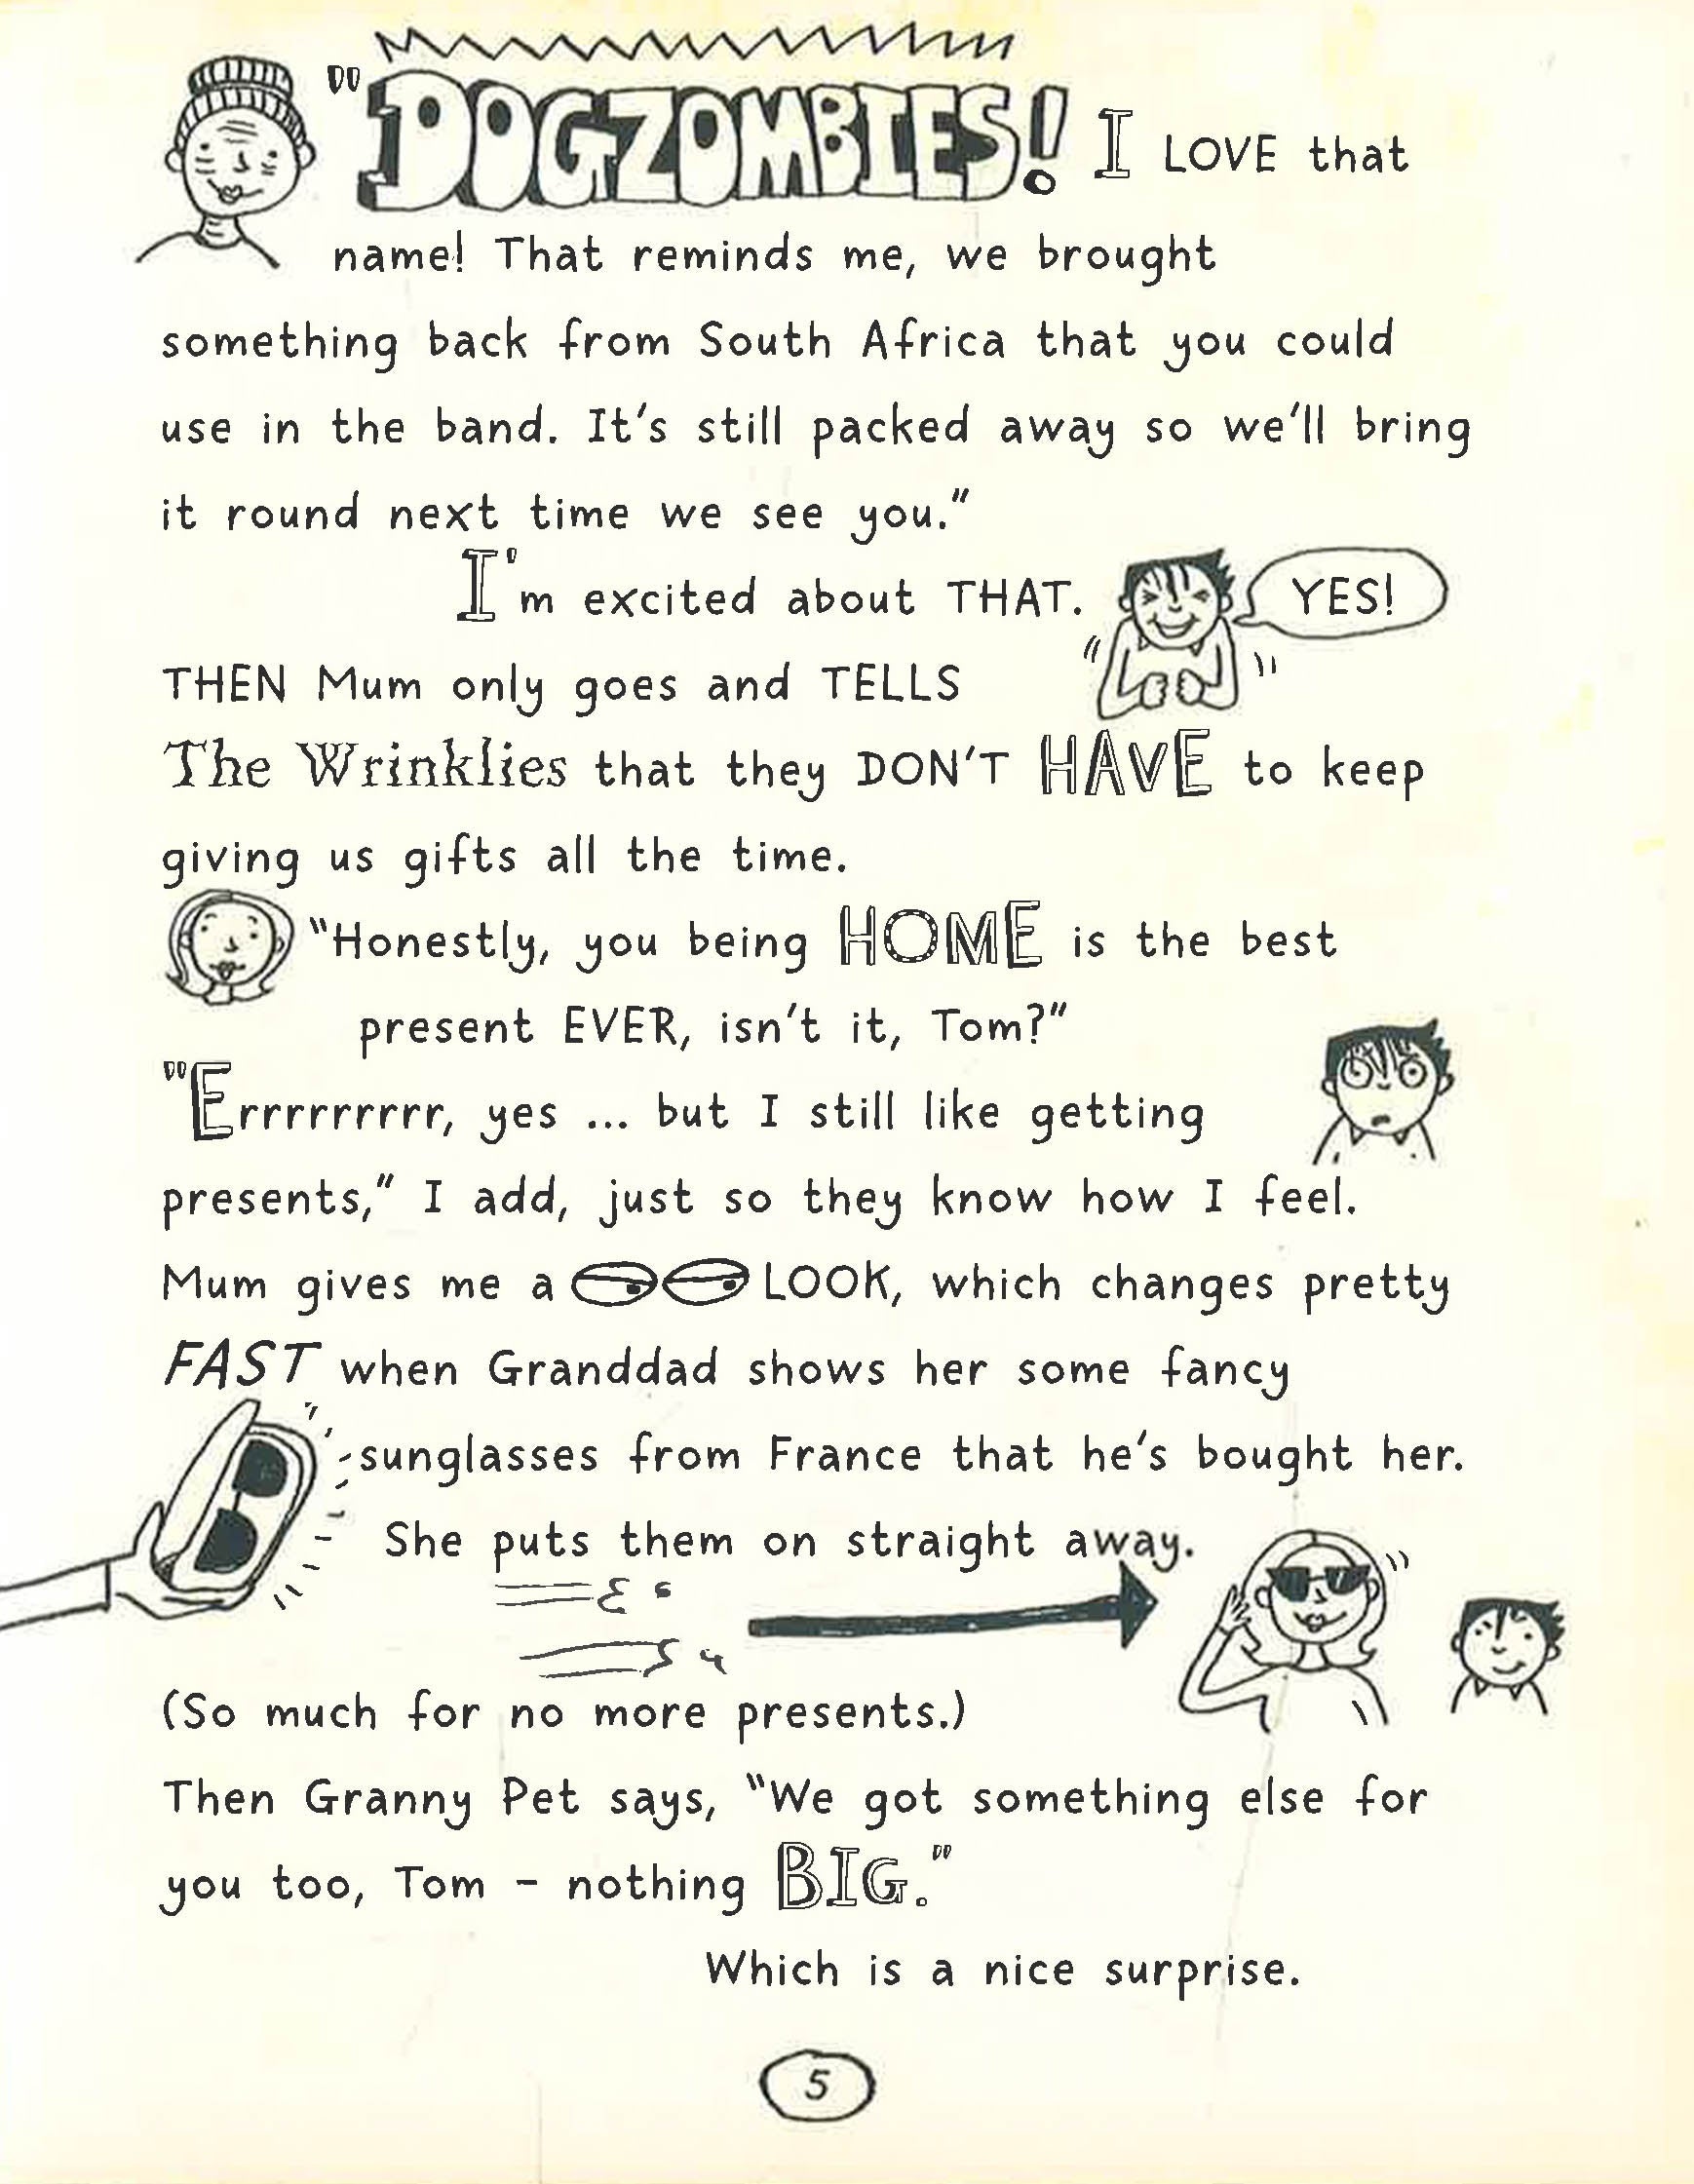 "DOGZOMBIES! I LOVE that
name! That reminds me, we brought
something back from South Africa that you could
use in the band. It's still packed away so we'll bring
it round next time we see you."
I'm excited about THAT.
YES!
THEN Mum only goes and TELLS
The Wrinklies that they DON'T HAVE to keep
giving us gifts all the time.
"Honestly, you being HOME is the best
present EVER, isn't it, Tom?"
"Errrrrrrrr, yes ... but I still like getting
presents," I add, just so they know how I feel.
Mum gives me a LOOK, which changes pretty
FAST when Granddad shows her some fancy
sunglasses from France that he's bought her.
She puts them on straight away.
(So much for no more presents.)
Then Granny Pet says, "We got something else for
you too, Tom - nothing BIG."
Which is a nice surprise.
5